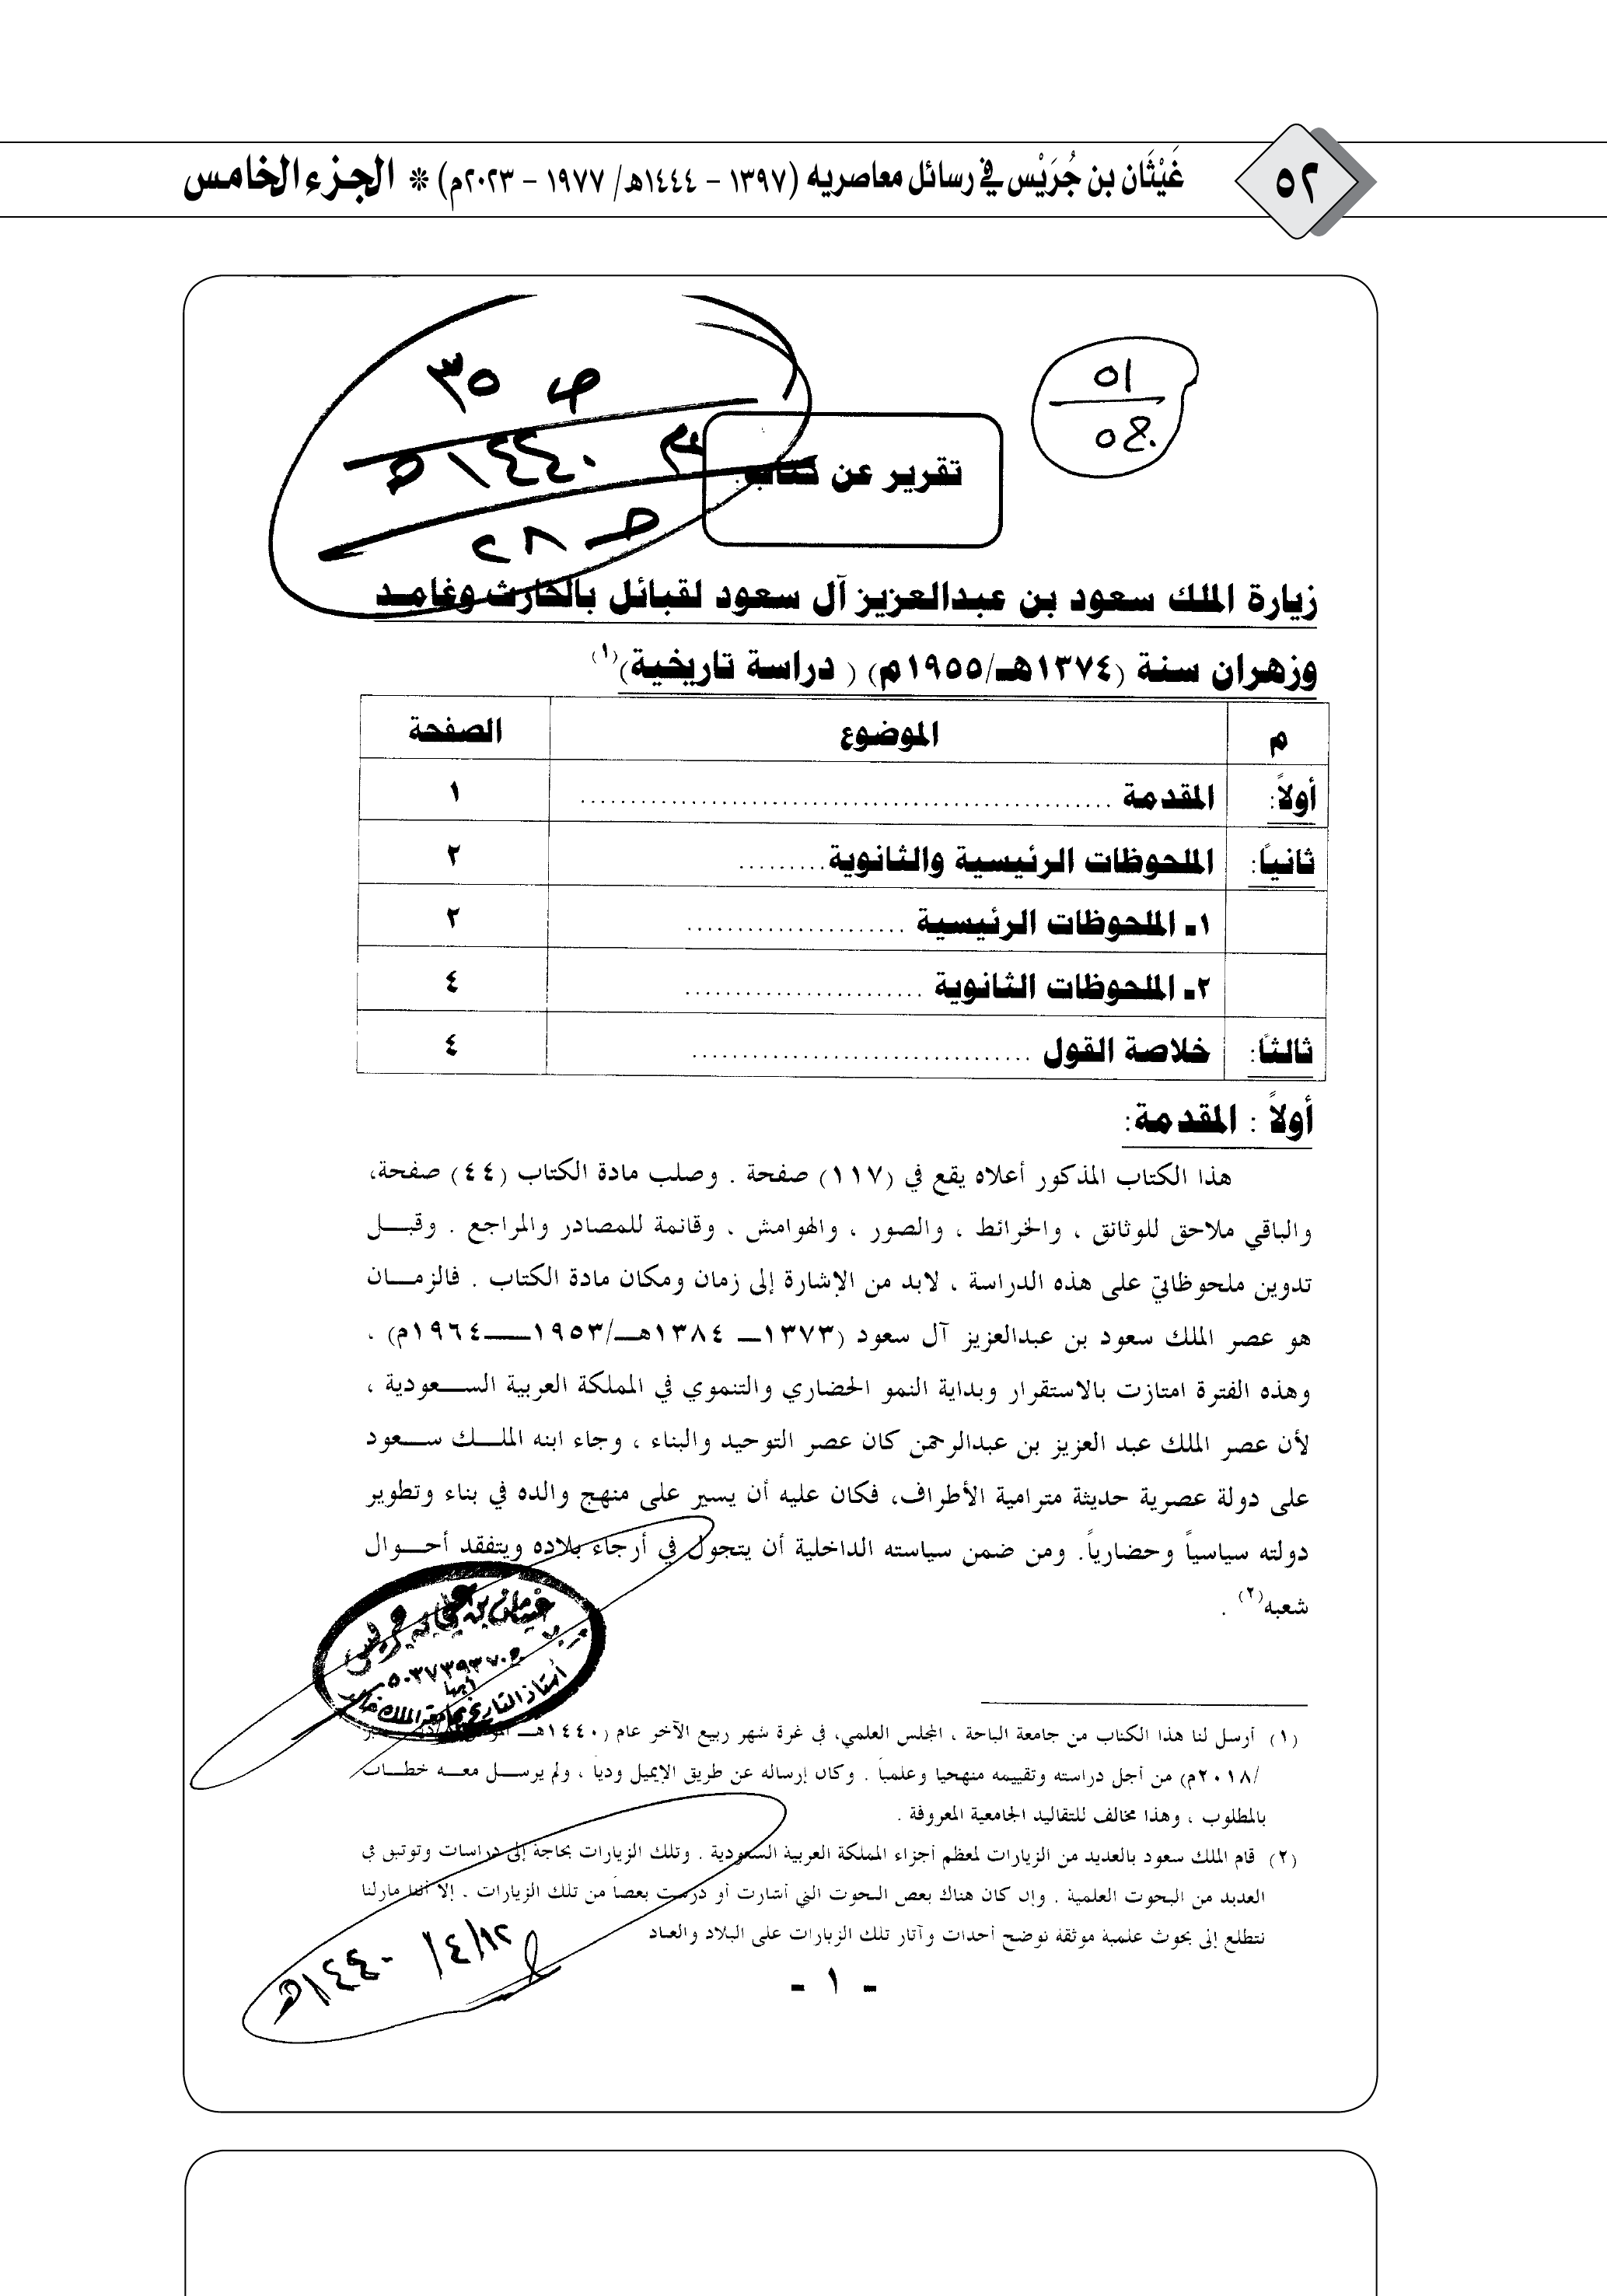 ٥٢
غَيْثَان بن جُرَيْس في رسائل معاصريه (١٣٩٧ - ١٤٤٤هـ/ ١٩٧٧ - ٢٠٢٣م) * الجزء الخامس
ص ٣٥
٥١
١٤٤٠هـ
ص ٢٨
تقرير عن كتاب:
زيارة الملك سعود بن عبدالعزيز آل سعود لقبائل بالحارث وغامـد
وزهران سنة (١٣٧٤هـ/١٩٥٥م) ( دراسة تاريخية)(١)
م الموضوع الصفحة
أولاً: المقدمة ..................................................... ١
ثانياً: الملحوظات الرئيسية والثانوية......... ٢
١ـ الملحوظات الرئيسية ...................... ٢
٢ـ الملحوظات الثانوية ........................ ٤
ثالثاً: خلاصة القول .................................. ٤
أولاً : المقدمة:
هذا الكتاب المذكور أعلاه يقع في (١١٧) صفحة . وصلب مادة الكتاب (٤٤) صفحة،
والباقي ملاحق للوثائق ، والخرائط ، والصور ، والهوامش ، وقائمة للمصادر والمراجع . وقبـــل
تدوين ملحوظاتي على هذه الدراسة ، لابد من الإشارة إلى زمان ومكان مادة الكتاب . فالزمـــان
هو عصر الملك سعود بن عبدالعزيز آل سعود (١٣٧٣ــ ١٣٨٤هـــ/١٩٥٣ـــــ١٩٦٤م) ،
وهذه الفترة امتازت بالاستقرار وبداية النمو الحضاري والتنموي في المملكة العربية الســـعودية ،
لأن عصر الملك عبد العزيز بن عبدالرحمن كان عصر التوحيد والبناء ، وجاء ابنه الملـــك ســـعود
على دولة عصرية حديثة مترامية الأطراف، فكان عليه أن يسير على منهج والده في بناء وتطوير
دولته سياسياً وحضارياً. ومن ضمن سياسته الداخلية أن يتجول في أرجاء بلاده ويتفقد أحـــوال
شعبه(٢) .
أستاذ التاريخ بجامعة الملك خالد
(١) أرسل لنا هذا الكتاب من جامعة الباحة ، المجلس العلمي، في غرة شهر ربيع الآخر عام (١٤٤٠هـــ
/٢٠١٨م) من أجل دراسته وتقييمه منهجياً وعلمياً . وكان إرساله عن طريق الإيميل ودياً ، ولم يرســـل معـــه خطـــاب
بالمطلوب ، وهذا مخالف للتقاليد الجامعية المعروفة .
(٢) قام الملك سعود بالعديد من الزيارات لمعظم أجزاء المملكة العربية السعودية . وتلك الزيارات بحاجة إلى دراسات وتوثيق في
العديد من البحوث العلمية . وإن كان هناك بعض البحوث التي أشارت أو درست بعضاً من تلك الزيارات . إلا أننا مازلنا
نتطلع إلى بحوث علمية موثقة توضح أحداث وآثار تلك الزيارات على البلاد والعباد
١٤٤٠/٤/١٢هـ
- ١ -